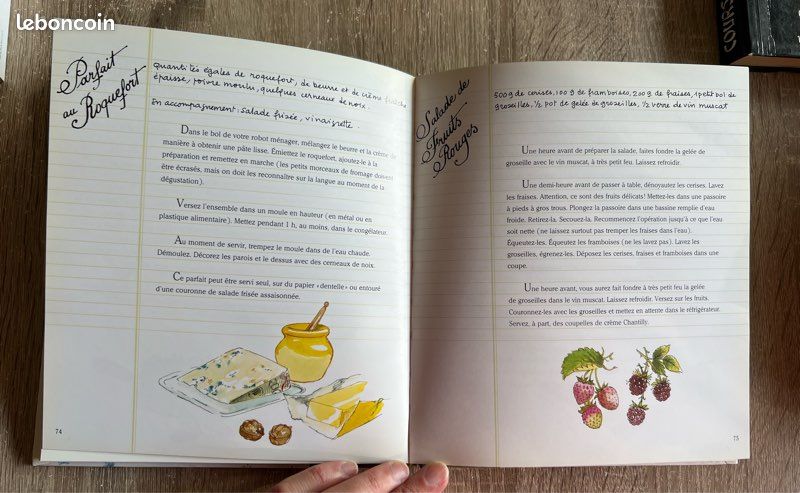 leboncoin
COURS
Parfait
au
Roquefort
quantités égales de roquefort, de beurre et de crème fraîche
épaisse, poivre moulu, quelques cerneaux de noix.
En accompagnement : salade frisée, vinaigrette.
Dans le bol de votre robot ménager, mélangez le beurre et la crème de
manière à obtenir une pâte lisse. Émiettez le roquefort, ajoutez-le à la
préparation et remettez en marche (les petits morceaux de fromage doivent
être écrasés, mais on doit les reconnaître sur la langue au moment de la
dégustation).
Versez l'ensemble dans un moule en hauteur (en métal ou en
plastique alimentaire). Mettez pendant 1 h, au moins, dans le congélateur.
Au moment de servir, trempez le moule dans de l'eau chaude.
Démoulez. Décorez les parois et le dessus avec des cerneaux de noix.
Ce parfait peut être servi seul, sur du papier «dentelle» ou entouré
d'une couronne de salade frisée assaisonnée.
74
Salade de
Fruits
Rouges
500 g de cerises, 100 g de framboises, 200 g de fraises, 1 petit bol de
groseilles, ½ pot de gelée de groseilles, ½ verre de vin muscat
Une heure avant de préparer la salade, faites fondre la gelée de
groseille avec le vin muscat, à très petit feu. Laissez refroidir.
Une demi-heure avant de passer à table, dénoyautez les cerises. Lavez
les fraises. Attention, ce sont des fruits délicats! Mettez-les dans une passoire
à pieds à gros trous. Plongez la passoire dans une bassine remplie d'eau
froide. Retirez-la. Secouez-la. Recommencez l'opération jusqu'à ce que l'eau
soit nette (ne laissez surtout pas tremper les fraises dans l'eau).
Équeutez-les. Équeutez les framboises (ne les lavez pas). Lavez les
groseilles, égrenez-les. Déposez les cerises, fraises et framboises dans une
coupe.
Une heure avant, vous aurez fait fondre à très petit feu la gelée
de groseilles dans le vin muscat. Laissez refroidir. Versez sur les fruits.
Couronnez-les avec les groseilles et mettez en attente dans le réfrigérateur.
Servez, à part, des coupelles de crème Chantilly.
75
leboncoin
leboncoin